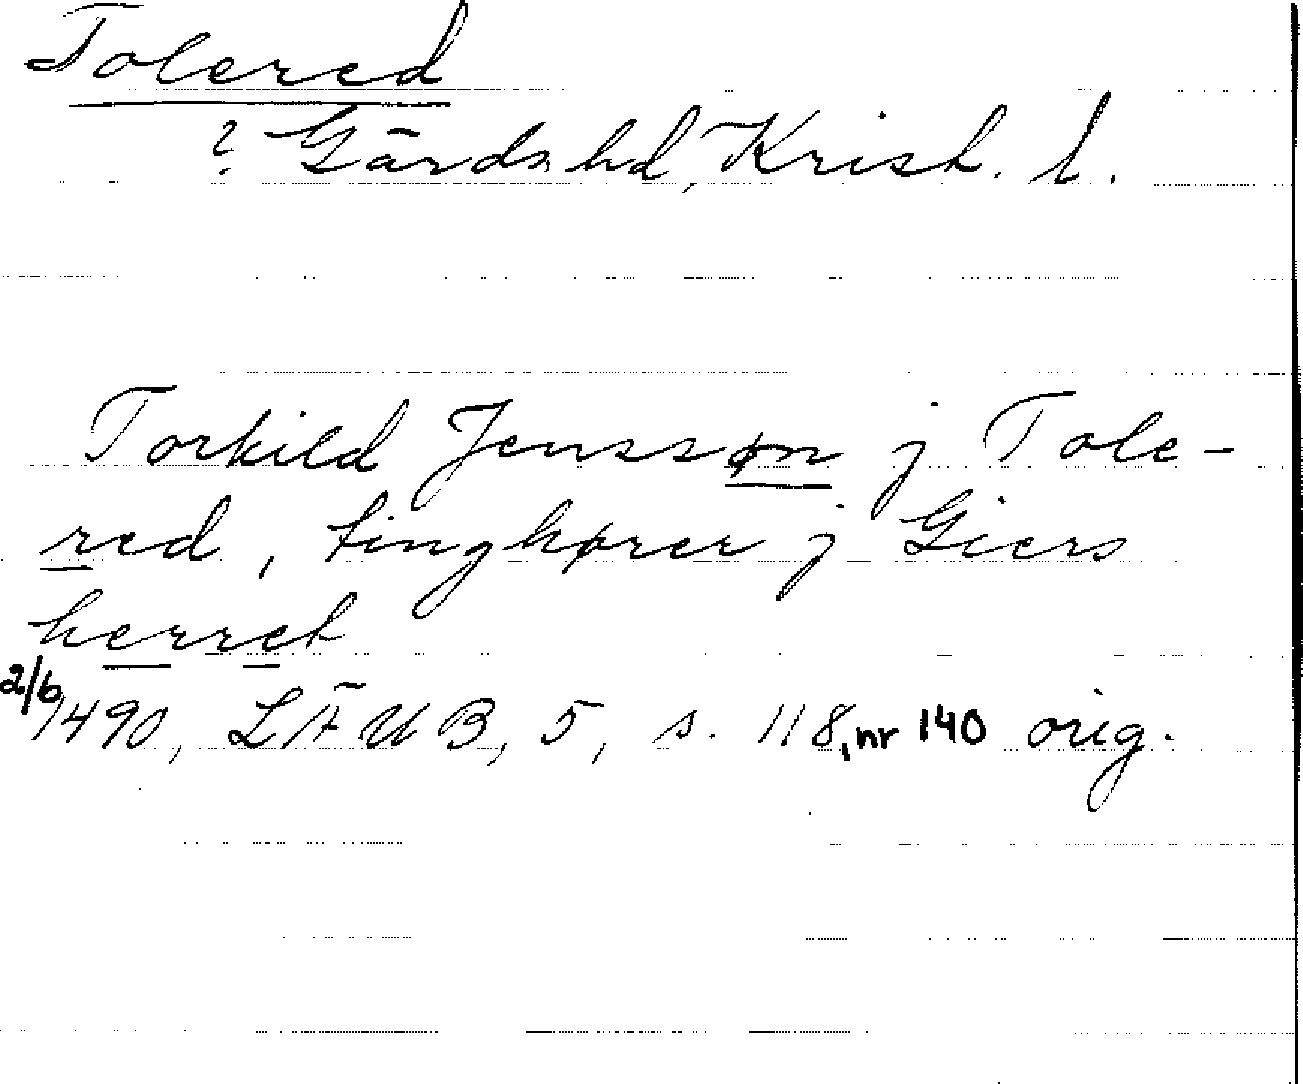 Tolered
? Gärds hd, Krist. l.
Torkild Jenssøn j Tole-
red, tinghører j Giers
herret
2/6 1490, LÄUB, 5, s. 118, nr 140 orig.